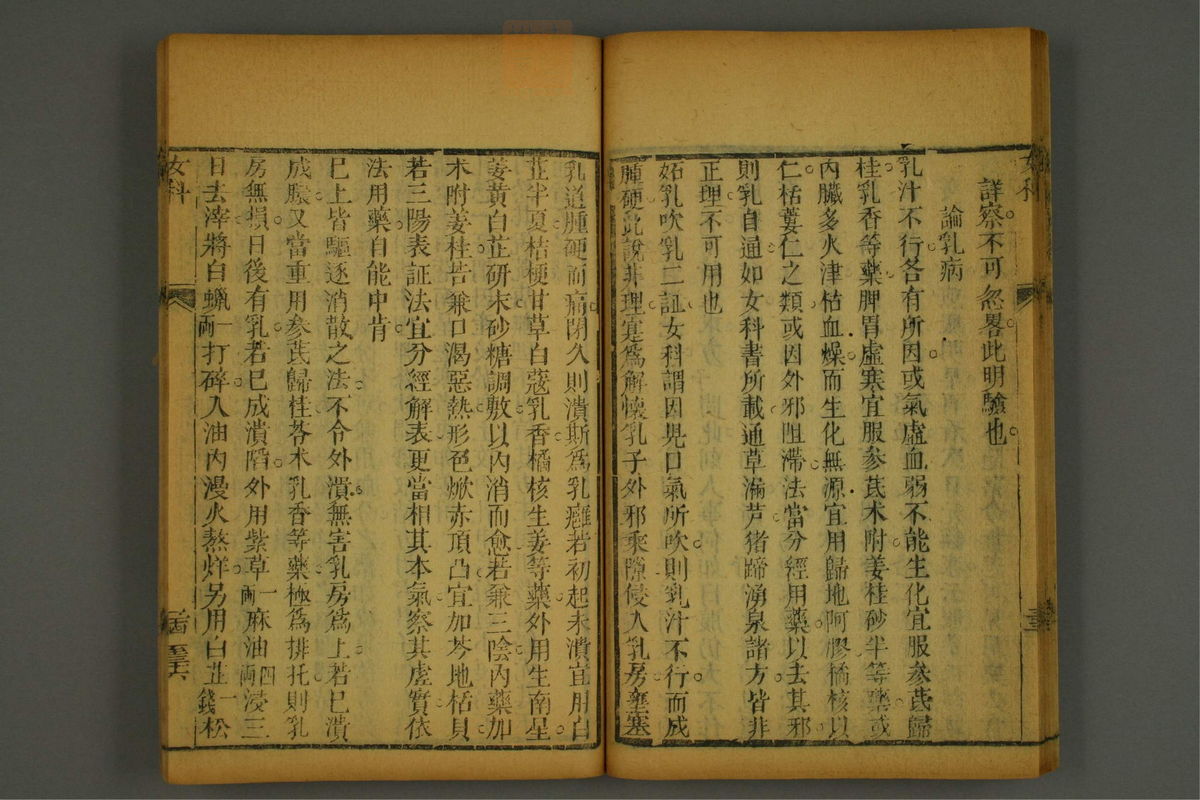 女科
詳察不可忽畧此明驗也
論乳病
乳汁不行各有所因或氣虛血弱不能生化宜服參茋歸
桂乳香等藥脾胃虛寒宜服參茋术附姜桂砂半等藥或
內臟多火津枯血燥而生化無源宜用歸地阿膠橘核以
仁栝蔞仁之類或因外邪阻滯法當分經用藥以去其邪
則乳自通如女科書所載通草漏芦猪蹄湧泉諸方皆非
正理不可用也
妬乳吹乳二証女科謂因児口氣所吹則乳汁不行而成
腫硬此說非理寔為解懷乳子外邪乘隙侵入乳房壅塞
乳道腫硬而痛閉久則潰斯為乳癰若初起未潰宜用白
芷半夏桔梗甘草白蔻乳香橘核生姜等藥外用生南星
姜黃白芷研末砂糖調敷以內消而愈若兼三陰內藥加
术附姜桂苦兼口渴惡熱形色焮赤頂凸宜加芩地栝貝
若三陽表証法宜分經解表更當相其本氣察其虛實依
法用藥自能中肯
已上皆驅逐消散之法不令外潰無害乳房為上若已潰
成膿又當重用參茋歸桂苓术乳香等藥極為排托則乳
房無損日後有乳若已成潰陷外用紫草一兩麻油四兩浸三
日去滓將白蠟一兩打碎入油內漫火熬烊另用白芷一錢松
女科